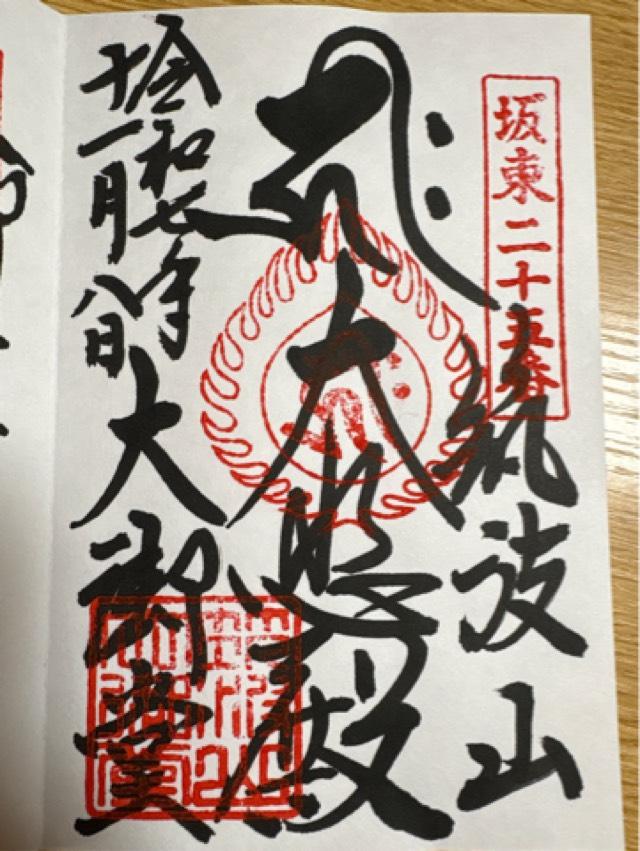 坂東二十五番
筑波山
大悲殿
大御堂
令和七年
十一月八日